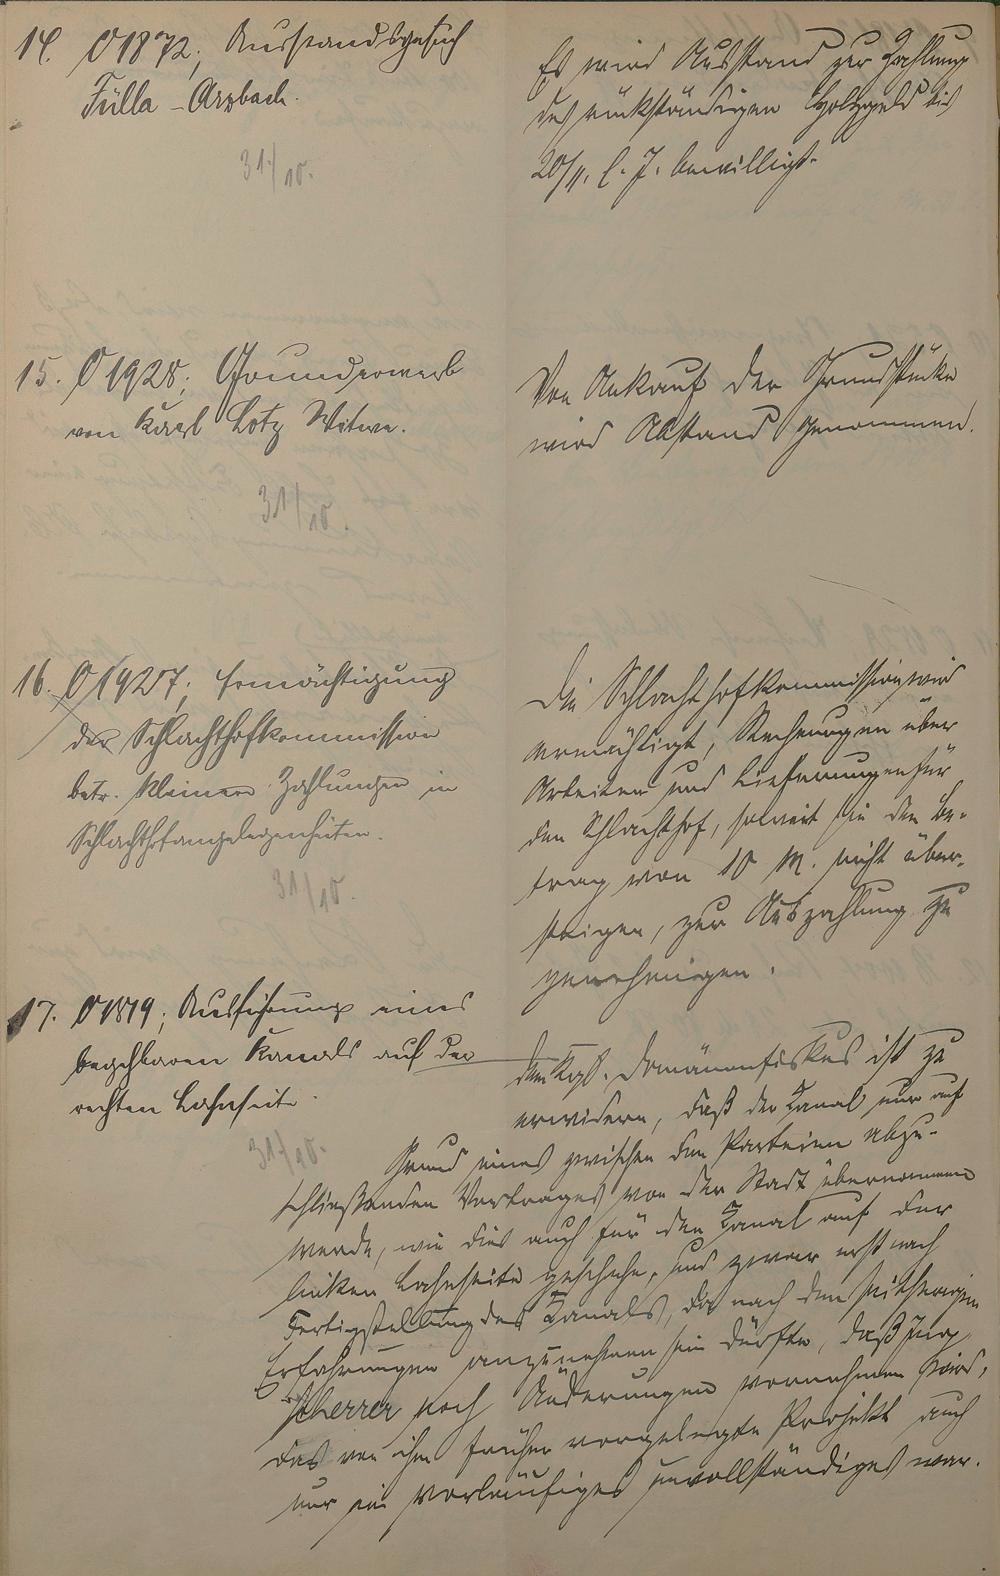 14. O 1872; Ausstandsgesuch
Fülla - Arzbach.
31/10.
Es wird Ausstand zur Zahlung
des rückständigen Holzgeld bis
20/11. l. J. bewilligt.
15. O 1928; Grunderwerb
von Karl Lotz Witwe.
31/10.
Von Ankauf der Grundstücke
wird Abstand genommen.
16. O 1927; Ermächtigung
der Schlachthofkommission
betr. kleinere Zahlungen in
Schlachthofangelegenheiten.
31/10.
Die Schlachthofkommission wird
ermächtigt, Rechnungen über
Arbeiten und Lieferungen für
den Schlachthof, soweit sie den Be-
trag von 10 M. nicht über-
steigen, zur Auszahlung zu
genehmigen.
17. O 1819; Ausführung eines
begehbaren Kanals auf der
rechten Lahnseite.
31/10.
dem Kgl. Domänenfiskus ist zu
erwidern, daß der Kanal nur auf
Grund eines zwischen den Parteien abzu-
schließenden Vertrages von der Stadt übernommen
werde, wie dies auch für den Kanal auf der
linken Lahnseite geschehe, und zwar erst nach
Fertigstellung des Kanals, da nach den seitherigen
Erfahrungen anzunehmen sein dürfte, daß Ing.
Scherrer noch Änderungen vornehmen wird,
das von ihm früher vorgelegte Projekt auch
nur ein vorläufiges unvollständiges war.